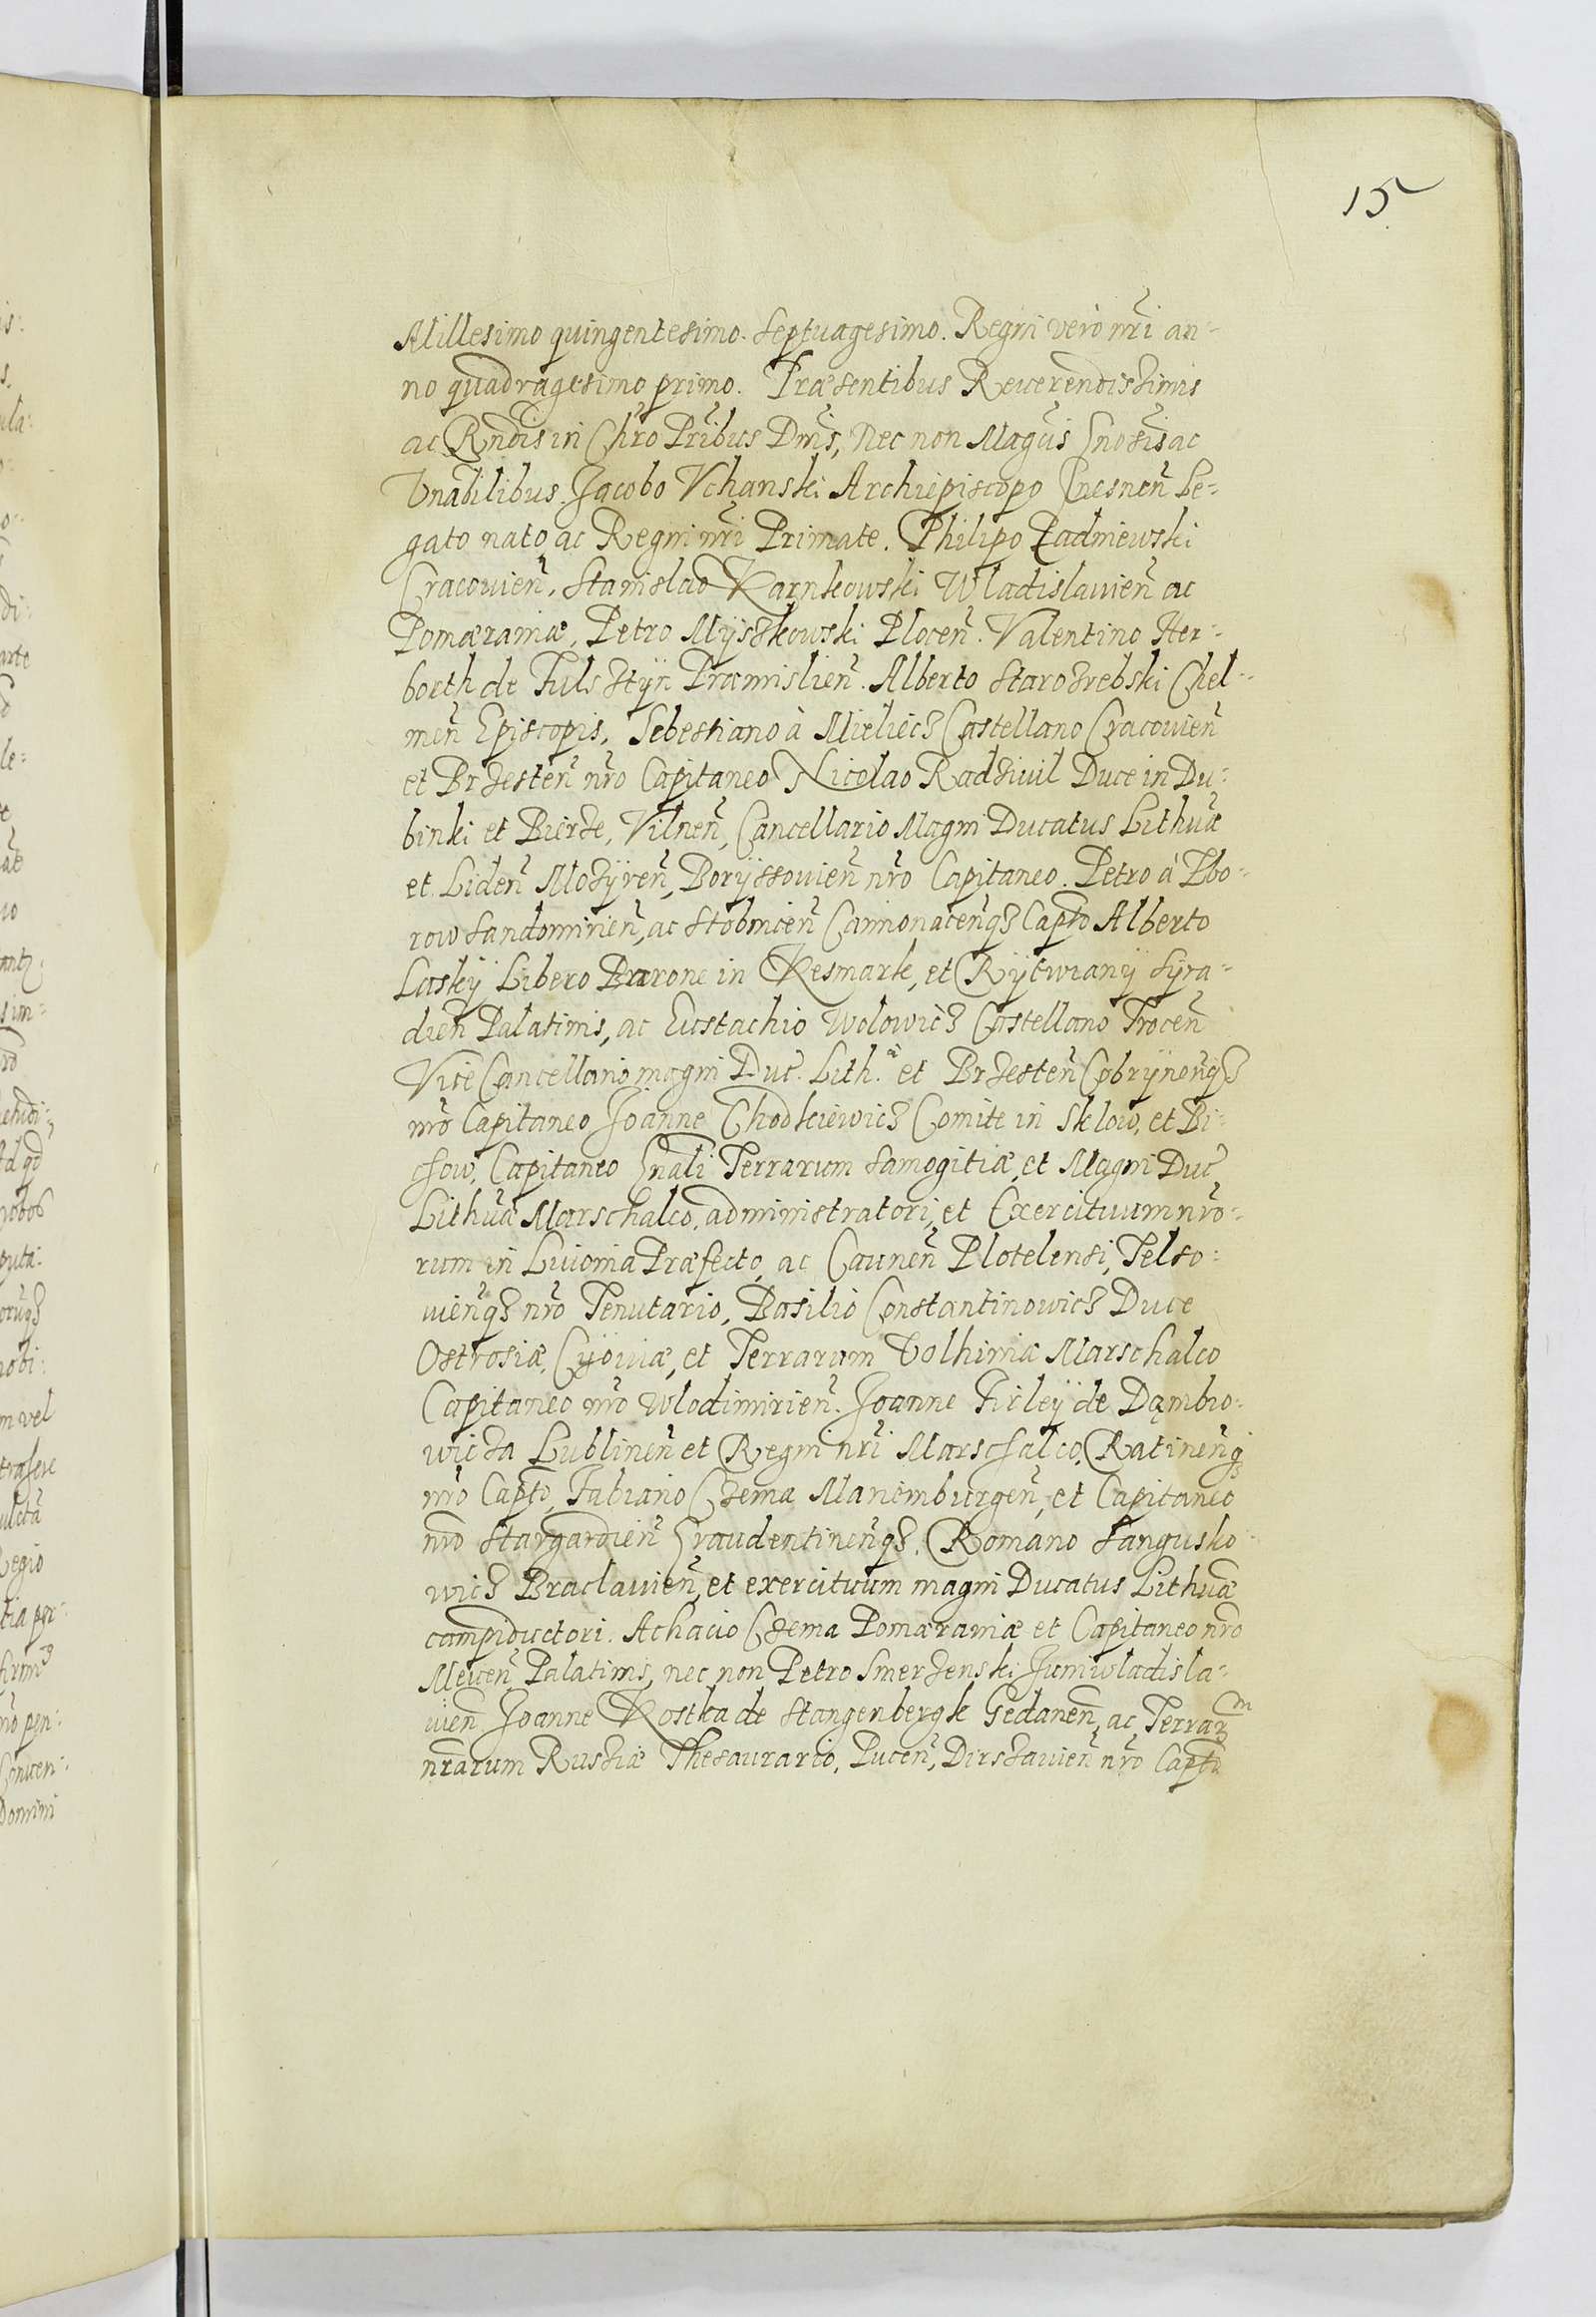 15
Millesimo quingentesimo. Septuagesimo. Regni verò nr̃i an-
no quadragesimo primo. Præsentibus Reuerendissimis
ac Rndis in Chro Pribus Dnis, Nec non Magcis Gnosis ac
Vnabilibus. Jacobo Vchanski Archiepiscopo Gnesnen̄ Le-
gato nato ac Regni nr̃i Primate. Philipo Padniewski
Cracouien̄, Stanislao Karnkowski Wladislauien̄ ac
Pomæraniæ, Petro Mÿszkowski Plocen̄. Valentino Her-
borth de Fulsztÿn Præmislien̄. Alberto Starozrebski Chel-
men̄ Episcopis, Sebestiano à Mielicz Castellano Cracouien̄
et Brzesten̄ nr̃o Capitaneo Nicolao Radziuil Duce in Du-
binki et Bierze, Vilnen̄, Cancellario Magni Ducatus Lithuæ
et Liden̄ Mozÿren̄, Borÿssouien̄ nr̃o Capitaneo. Petro à Zbo-
row Sandomirien̄, ac Stobnicen̄ Camionacen̄q3 Capto Alberto
Laskÿ Libero Barone in Kesmark, et Rÿtwianÿ Sÿra-
dien̄ Palatinis, ac Eustachio Wolowicz Castellano Trocen̄
Vice Cancellario magni Duc. Lith.æ et Brzesten̄ Cobrÿnen̄q3
nr̃o Capitaneo Joanne Chodkiewicz Comite in Sklow, et Bi-
chow, Capitaneo Gnali Terrarum Samogitiæ, et Magni Duc
Lithuæ Marschalco, administratori, et Exercituum nr̃o-
rum in Liuonia Præfecto, ac Caunen̄ Plotelensi, Telso-
uien̄q3 nr̃o Tenutario, Basilio Constantinowicz Duce
Ostrosiæ, Cÿouiæ, et Terrarum Volhiniæ Marschalco
Capitaneo nr̃o Wlodimirien̄. Joanne Firleÿ de Dąmbro-
wicza Lublinen̄ et Regni nr̃i Marschalco, Ratinen̄q3
nr̃o Capto, Fabiano Czema Mariemburgen̄, et Capitaneo
nr̃o Stargardien̄ Graudentinen̄q3. Romano Sangusko-
wicz Braclauien̄, et exercituum magni Ducatus Lithuæ
campiductori. Achacio Czema Pomæraniæ et Capitaneo nr̃o
Meuen̄ Palatinis, nec non Petro Smerzenski Juniwladisla-
uien̄ Joanne Kostka de Stangenbergk Gedanen̄, ac Terrarm
nr̃arum Russiæ Thesaurario, Pucen̄, Dirszauien̄ nr̃o Capto